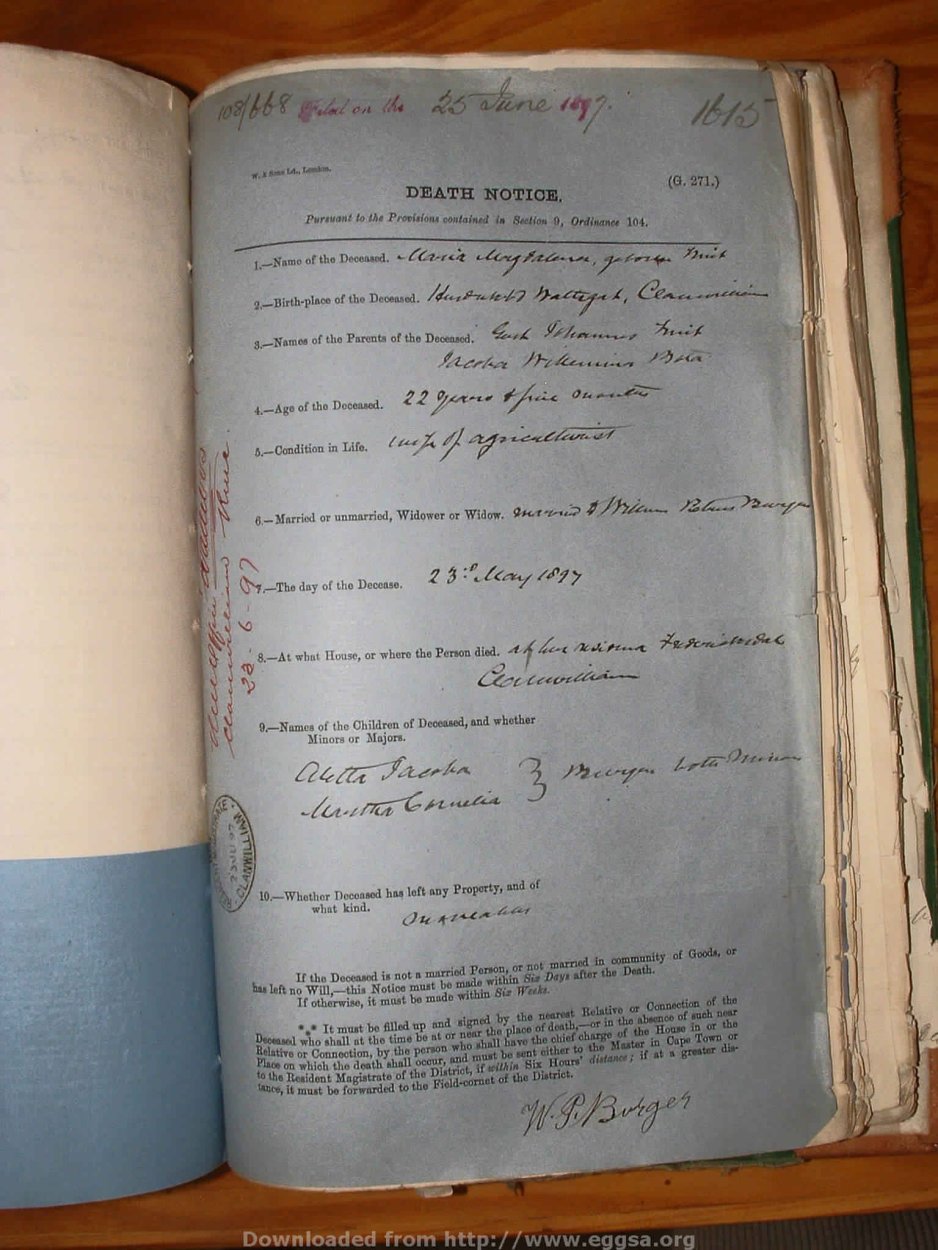 108/668 Filed on the 25 June 1897. 1615
W. & Sons Ld., London.
(G. 271.)
DEATH NOTICE,
Pursuant to the Provisions contained in Section 9, Ordinance 104.
1.—Name of the Deceased. Maria Magdalena,
2.—Birth-place of the Deceased. Clanwilliam
3.—Names of the Parents of the Deceased. Johannes
Jacoba
4.—Age of the Deceased. 22 years & five months
5.—Condition in Life. wife of agriculturist
6.—Married or unmarried, Widower or Widow. married to Willem Petrus Burger
7.—The day of the Decease. 23rd May 1897
8.—At what House, or where the Person died. at her
Clanwilliam
9.—Names of the Children of Deceased, and whether
Minors or Majors.
Aletta Jacoba } Burger both Minors
Martha Cornelia
10.—Whether Deceased has left any Property, and of
what kind.
If the Deceased is not a married Person, or not married in community of Goods, or
has left no Will,—this Notice must be made within Six Days after the Death.
If otherwise, it must be made within Six Weeks.
*** It must be filled up and signed by the nearest Relative or Connection of the
Deceased who shall at the time be at or near the place of death,—or in the absence of such near
Relative or Connection, by the person who shall have the chief charge of the House in or the
Place on which the death shall occur, and must be sent either to the Master in Cape Town or
to the Resident Magistrate of the District, if within Six Hours' distance; if at a greater dis-
tance, it must be forwarded to the Field-cornet of the District.
W. P. Burger
Clanwilliam
23-6-97
CLANWILLIAM
Downloaded from http://www.eggsa.org